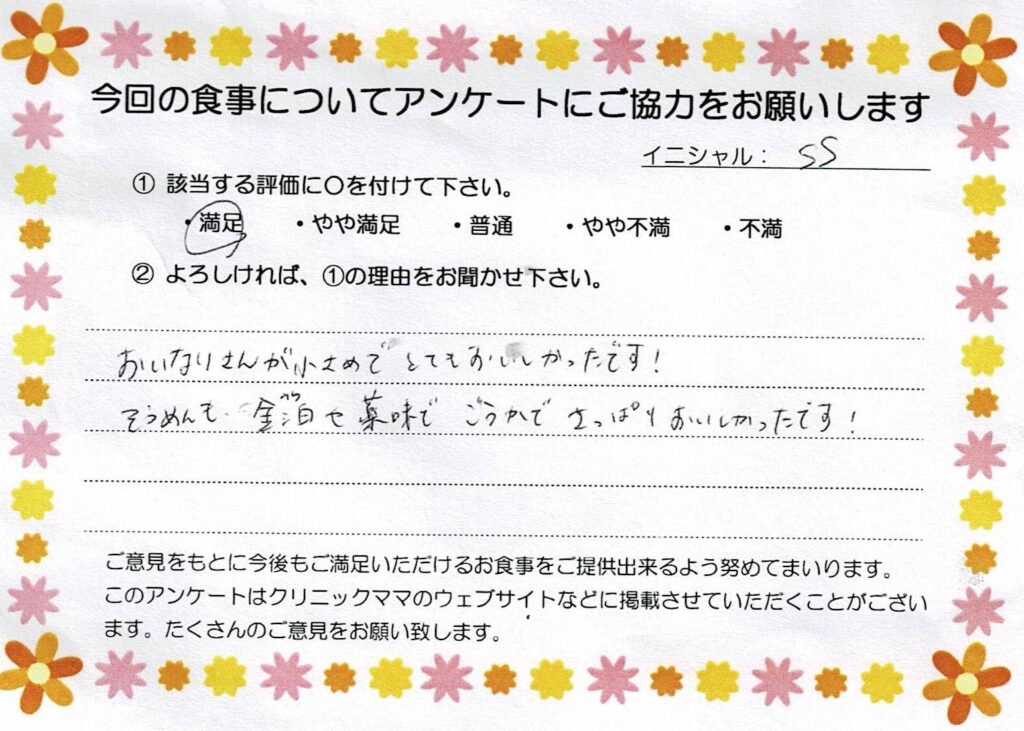 今回の食事についてアンケートにご協力をお願いします
イニシャル： SS
① 該当する評価に〇を付けて下さい。
・満足 ・やや満足 ・普通 ・やや不満 ・不満
② よろしければ、①の理由をお聞かせ下さい。
おいなりさんが小さめでとてもおいしかったです！
そうめんも、金泊や薬味でごうかでさっぱりおいしかったです！
ご意見をもとに今後もご満足いただけるお食事をご提供出来るよう努めてまいります。
このアンケートはクリニックママのウェブサイトなどに掲載させていただくことがござい
ます。たくさんのご意見をお願い致します。